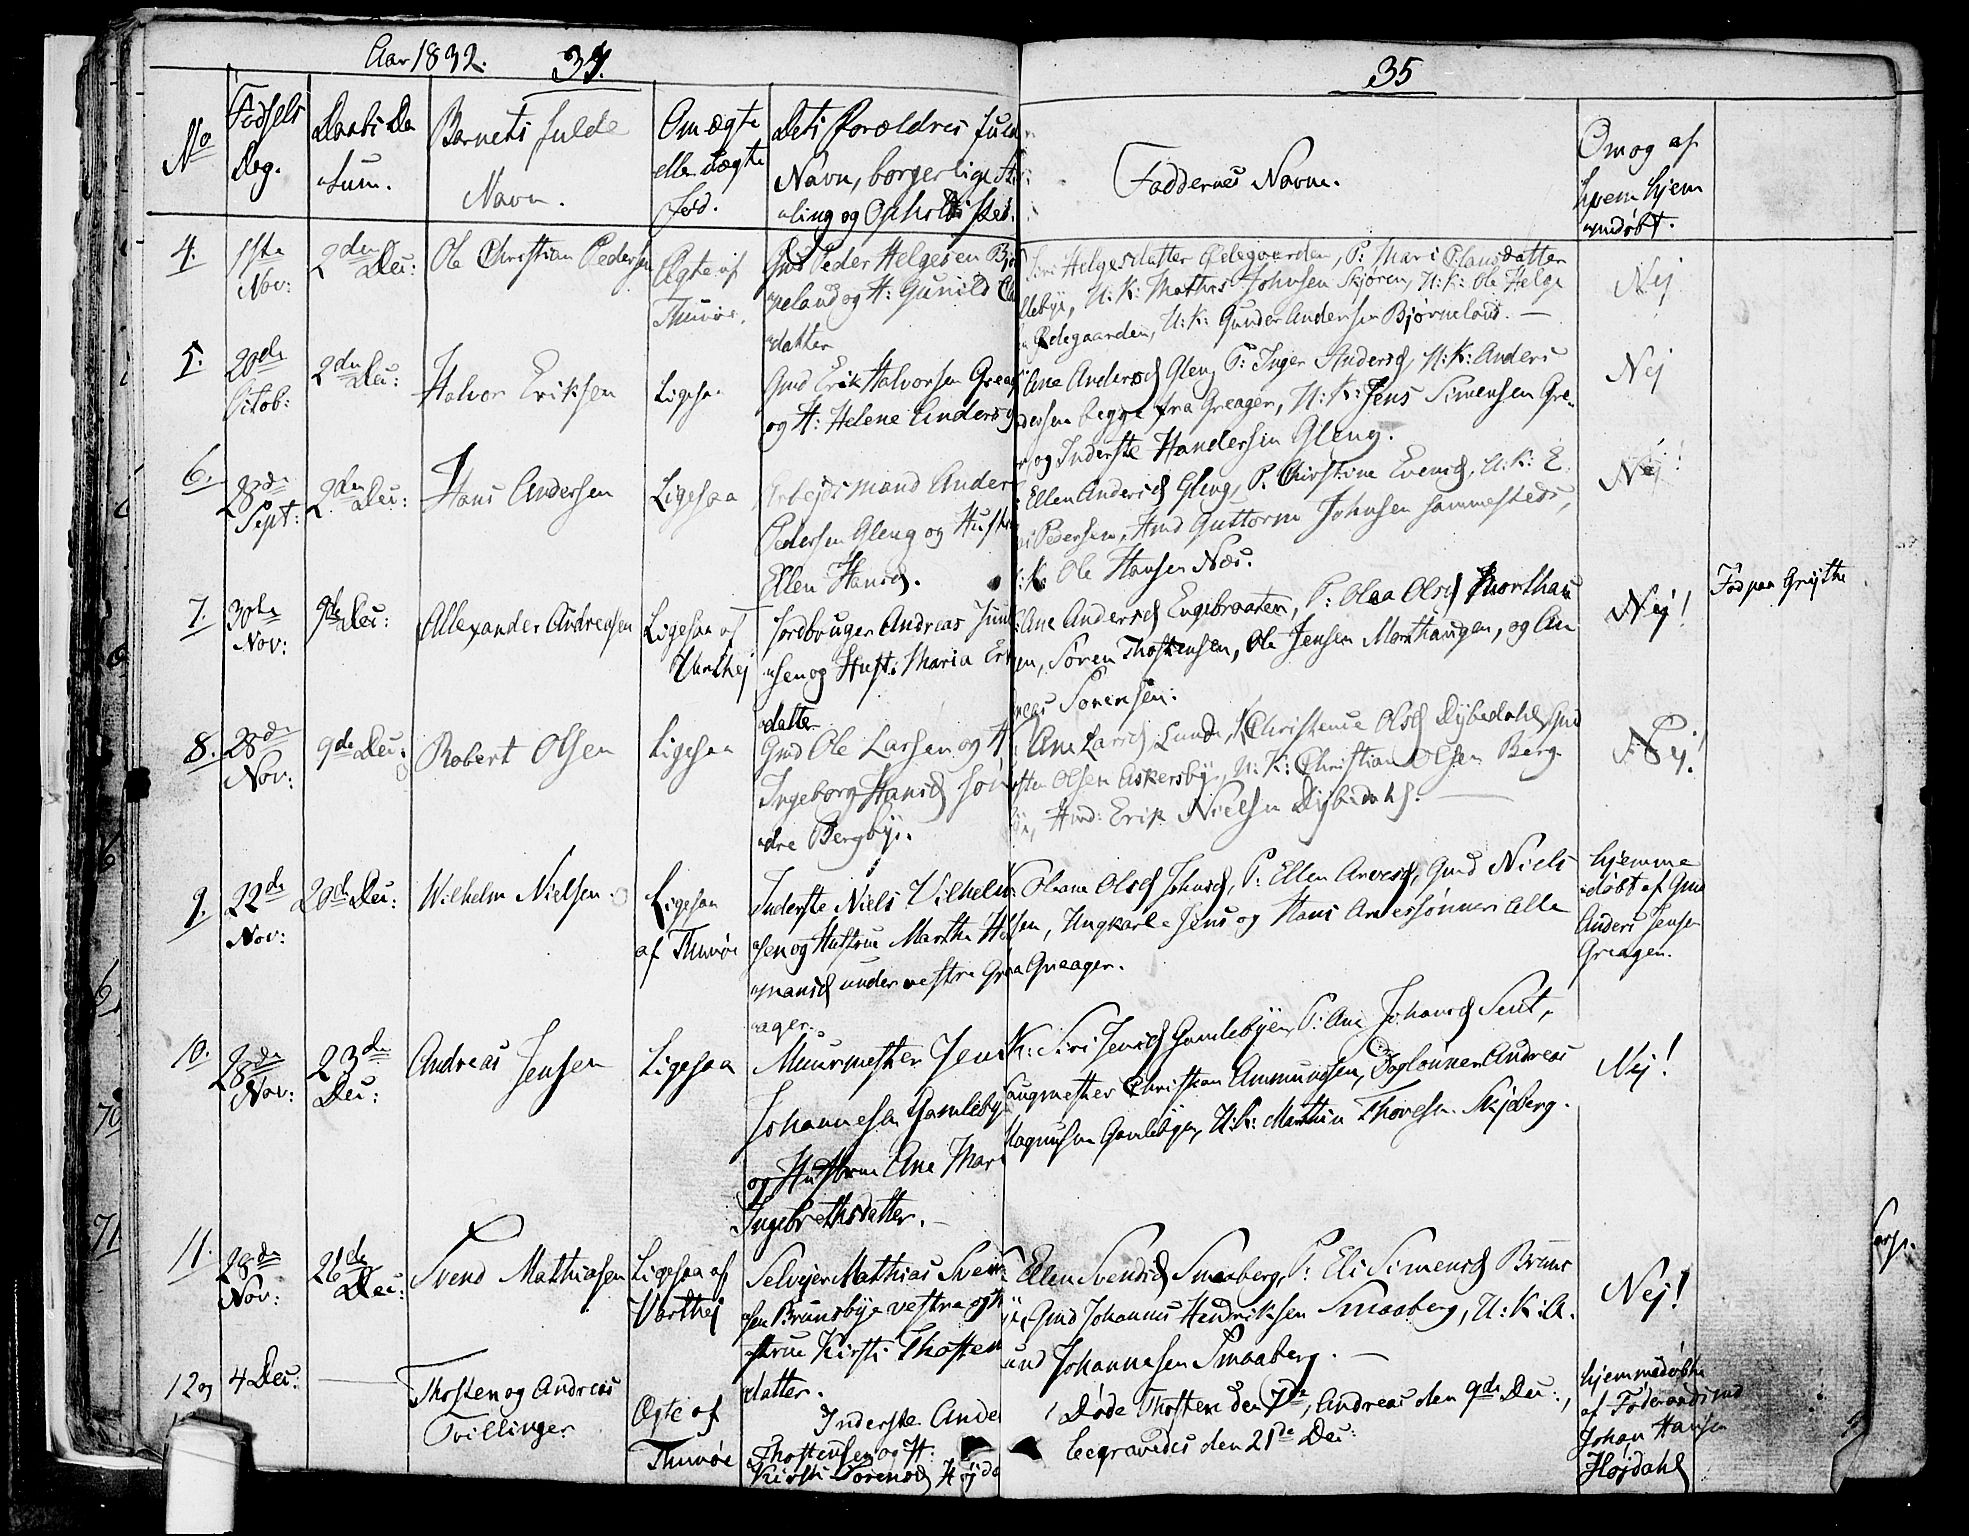 Aar 1832. 34.
35
No
Fødsels
Dag.
Daabs Da
"tum.
Barnets fulde
Navn.
Om ægte
eller uægte
fød.
Dets Forældres fuld
Navn, borgerlige
"ling og Opholdsted.
Faddernes Navne.
Om og af
hvem hjem
"medøbt.
4.
1ste
Nov:
2den Dec:
Ole Christian Pedersen
Ægte af
Thunøe.
Gmd Peder Helgesen Bjør
"neland og H: Gunild
"datter
Siri Helgesdatter Ødegaarden, P: Mari Olausdatter
llebye, U: K: Mathis Johnsen Skjøren, U: K: Ole Helge
n Ødegaarden, U: K: Gunder Andersen Bjørneland. —
Nej
5.
20de
Octob:
2den Dec:
Halvor Eriksen
Ligesaa
Gmd Erik Halvorsen Greag
og H: Helene Andersd
Ane Andersd Gleng P: Inger Andersd, U: K: Anders
dersen begge fra Greager, U: K: Jens Simensen Gre„
r, og Inderste Handersen Gleng.
Nej
6.
28de
Sept:
2den Dec:
Hans Andersen
Ligesaa
Arbejdsmand Ander
Pedersen Gleng og Hustr
Ellen Hansd.
Ellen Andersd Gleng, P: Chirstine Evensd, U: K: E
Pedersen, Gmd Guttorm Johnsen sammesteds,
: K: Ole Hansen Næs.
Nej!
7.
30te
Nov:
9de Dec:
Allexander Andreasen
Ligesaa af
Varthej
Jordbruger Andreas
"sen og Hust: Maria Er
"datter
Ane Andersd Engebraaten, P: Olea Olsd Morthau
en, Søren Thostensen, Ole Jensen Morthaugen, og An
reas Sørensen:
Nej!
Fød paa Grøthe
8.
28de
Nov:
9de Dec:
Robert Olsen
Ligesaa
Gmd Ole Larsen og H
Ingeborg Hansd søn
"dre Bergbye.
Ane Larsd Lunde, Christence Olsd Dybedahl, Gmd
sten Olsen Askersbye, U: K: Christian Olsen Berg
ye, Gmd: Erik Nielsen Dybedahl. —
Nej!
9.
22de
Nov:
20de Dec:
Wilhelm Nielsen.
Ligesaa
af Thunøe
Inderste Niels Vilhelm
"sen og Hustrue Marthe H
"mansd under vestre Gre
"ager.
Oleane Olsd Johnsd, P: Ellen Arvesd, Gmd Niels
sen, Ungkarle Jens og Hans Arvessønner alle
Greager.
hjemme
"døbt af Gmd
Anders Jensen
Greagen.
10.
28de
Nov:
23de
Dec:
Andreas Jensen
Ligesaa
Muurmester Jens
Johannesen Gamlebye
og Hustrue Ane Mari
Ingebrethsdatter. —
K: Siri Jensd Gamlebyen, P: Ane Johansd Sent,
Laugmester Christian Ammundsen, Daglønner Andreas
Magnussen Gamlebyen, U: K: Marthin Thoresen Skjeberg.
Nej!
11.
28de
Nov:
26de
Dec:
Svend Mathiasen
Ligesaa af
Varthej
Selvejer Mathias Svend
"sen Brunsbye vestre og H
"strue Kirsti Thosten
datter.
Ellen Svendsd Smaaberg, P: Eli Simensd Bruns
ye, Gmd Johannes Hendriksen Smaaberg, U: K: A
und Johannesen Smaaberg. —
Nej!
12 og
4 Dec:
Thosten og Andreas
Tvillinger
Ægte af
Thunøe
Inderste Ande
Thostensen og H:
Kirsti Sørensd Højda
Døde Thosten den 7de, Andreas den 9de Dec:,
begravedes den 21de Dec:
hjemmedøbte
af Føderaadsmd
Johan Hansen
Højdahl